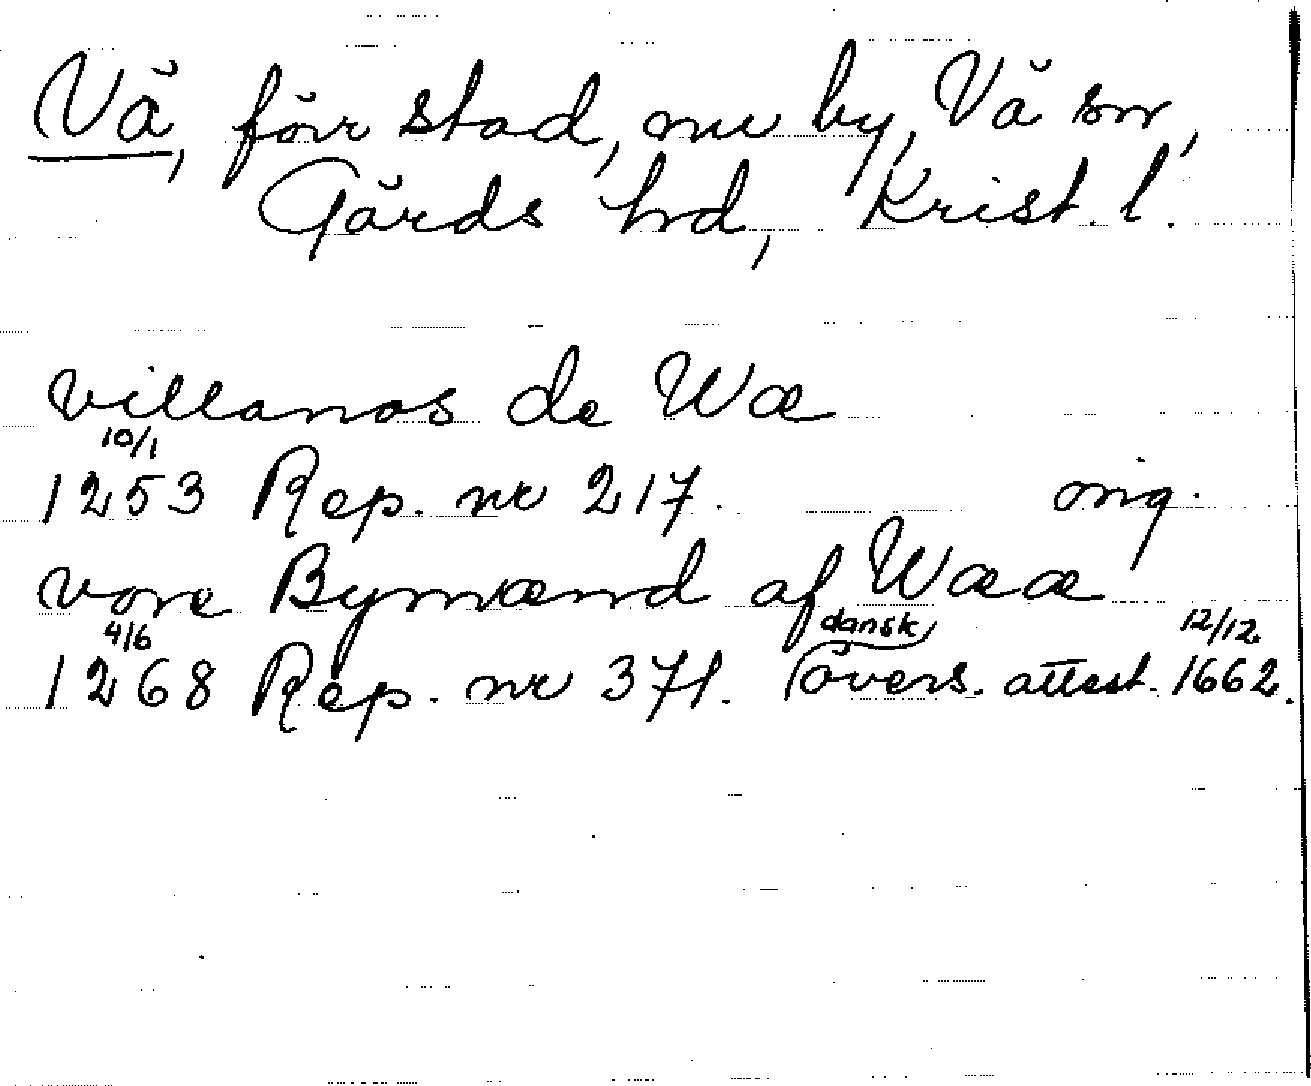 Vä, förr stad, nu by, Vä sn,
Gärds hd, Krist. l.
villanos de Wæ
10/1
1253 Rep. nr 217. orig.
vore Bymænd af Wææ
4/6 dansk 12/12
1268 Rep. nr 371. övers. attest. 1662.